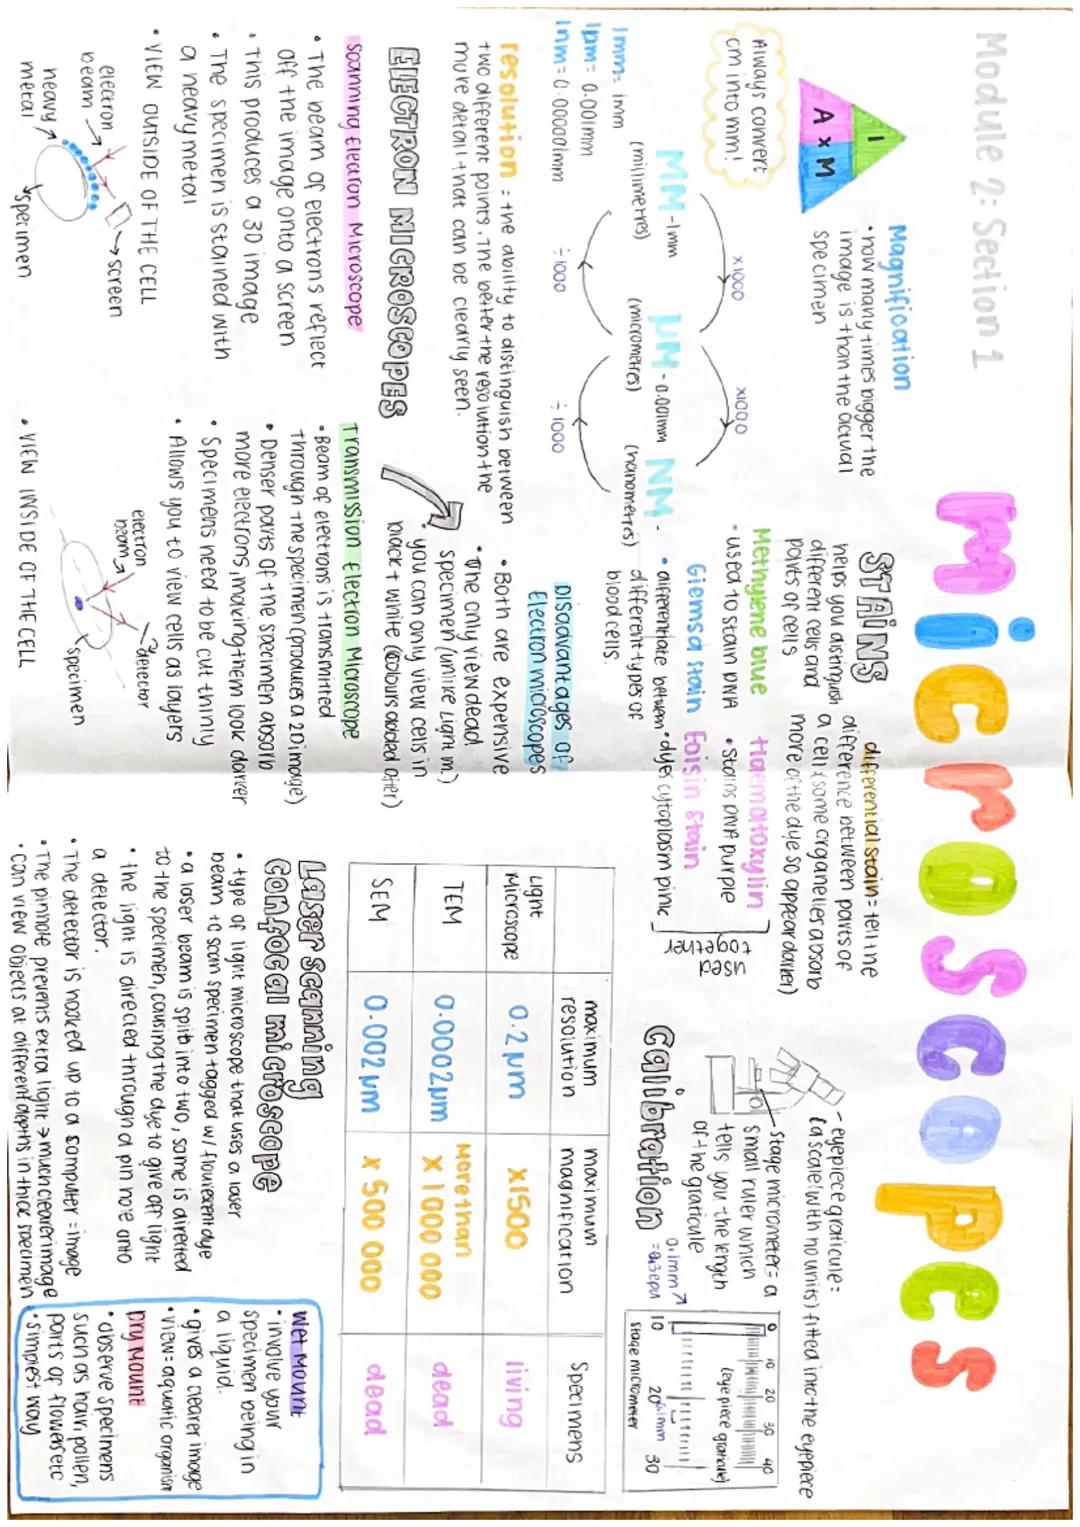 Module 2: Section 1
Microscopes
I
A x M
Magnification
• how many times bigger the
image is than the actual
specimen
Always convert
cm into mm!
x1000
x1000
MM - 1mm
(millimetres)
µM - 0.001mm
(micrometres)
NM -
(nanometres)
÷ 1000
÷ 1000
1mm = 1mm
1µm = 0.001mm
1nm = 0.000001mm
resolution : the ability to distinguish between
two different points. The better the resolution the
more detail that can be clearly seen.
STAINS
helps you distinguish
different cells and
parts of cells
differential stain = tell the
difference between parts of
a cell (some organelles absorb
more of the dye so appear darker)
Methylene blue
• used to stain DNA
Giemsa stain
• differentiate between
different types of
blood cells.
Haematoxylin
• Stains DNA purple
Eoisin Stain
• dyes cytoplasm pink
used
together
- eyepiece graticule =
(a scale (with no units) fitted into the eyepiece
Stage micrometer = a
small ruler which
tells you the length
of the graticule
Calibration
0.1mm
0 10 20 30 40
(eye piece graticule)
10 20 30
0.1mm
stage micrometer
ELECTRON MICROSCOPES
Scanning Electron Microscope
• The beam of electrons reflect
off the image onto a screen
• This produces a 3D image
• The specimen is stained with
a heavy metal
• VIEW OUTSIDE OF THE CELL
electron
beam
screen
heavy
metal
specimen
Disadvantages of
Electron microscopes
• Both are expensive
• The only view dead
specimen (unlike light m.)
• you can only view cells in
black + white (colours added after)
Transmission Electron Microscope
• Beam of electrons is transmitted
through the specimen (produces a 2D image)
• Denser parts of the specimen absorb
more electrons, making them look darker
• Specimens need to be cut thinly
• Allows you to view cells as layers
electron
beam
detector
specimen
• VIEW INSIDE OF THE CELL
maximum
resolution
maximum
magnification
Specimens
Light
Microscope
0.2 µm
x1500
living
TEM
0.0002µm
More than
x 1 000 000
dead
SEM
0.002µm
x 500 000
dead
Laser scanning
confocal microscope
• type of light microscope that uses a laser
beam to scan specimen tagged w/ flourexent dye
• a laser beam is split into two, some is directed
to the specimen, causing the dye to give off light
• the light is directed through a pin hole onto
a detector.
• The detector is hooked up to a computer = image
• The pinhole prevents extra light → much clearer image
• can view objects at different depths in thick specimen
Wet Mount
• involve your
specimen being in
a liquid.
• gives a clearer image
• view = aquatic organism
Dry Mount
• observe specimens
such as hair, pollen,
parts of flowers etc
• simplest way